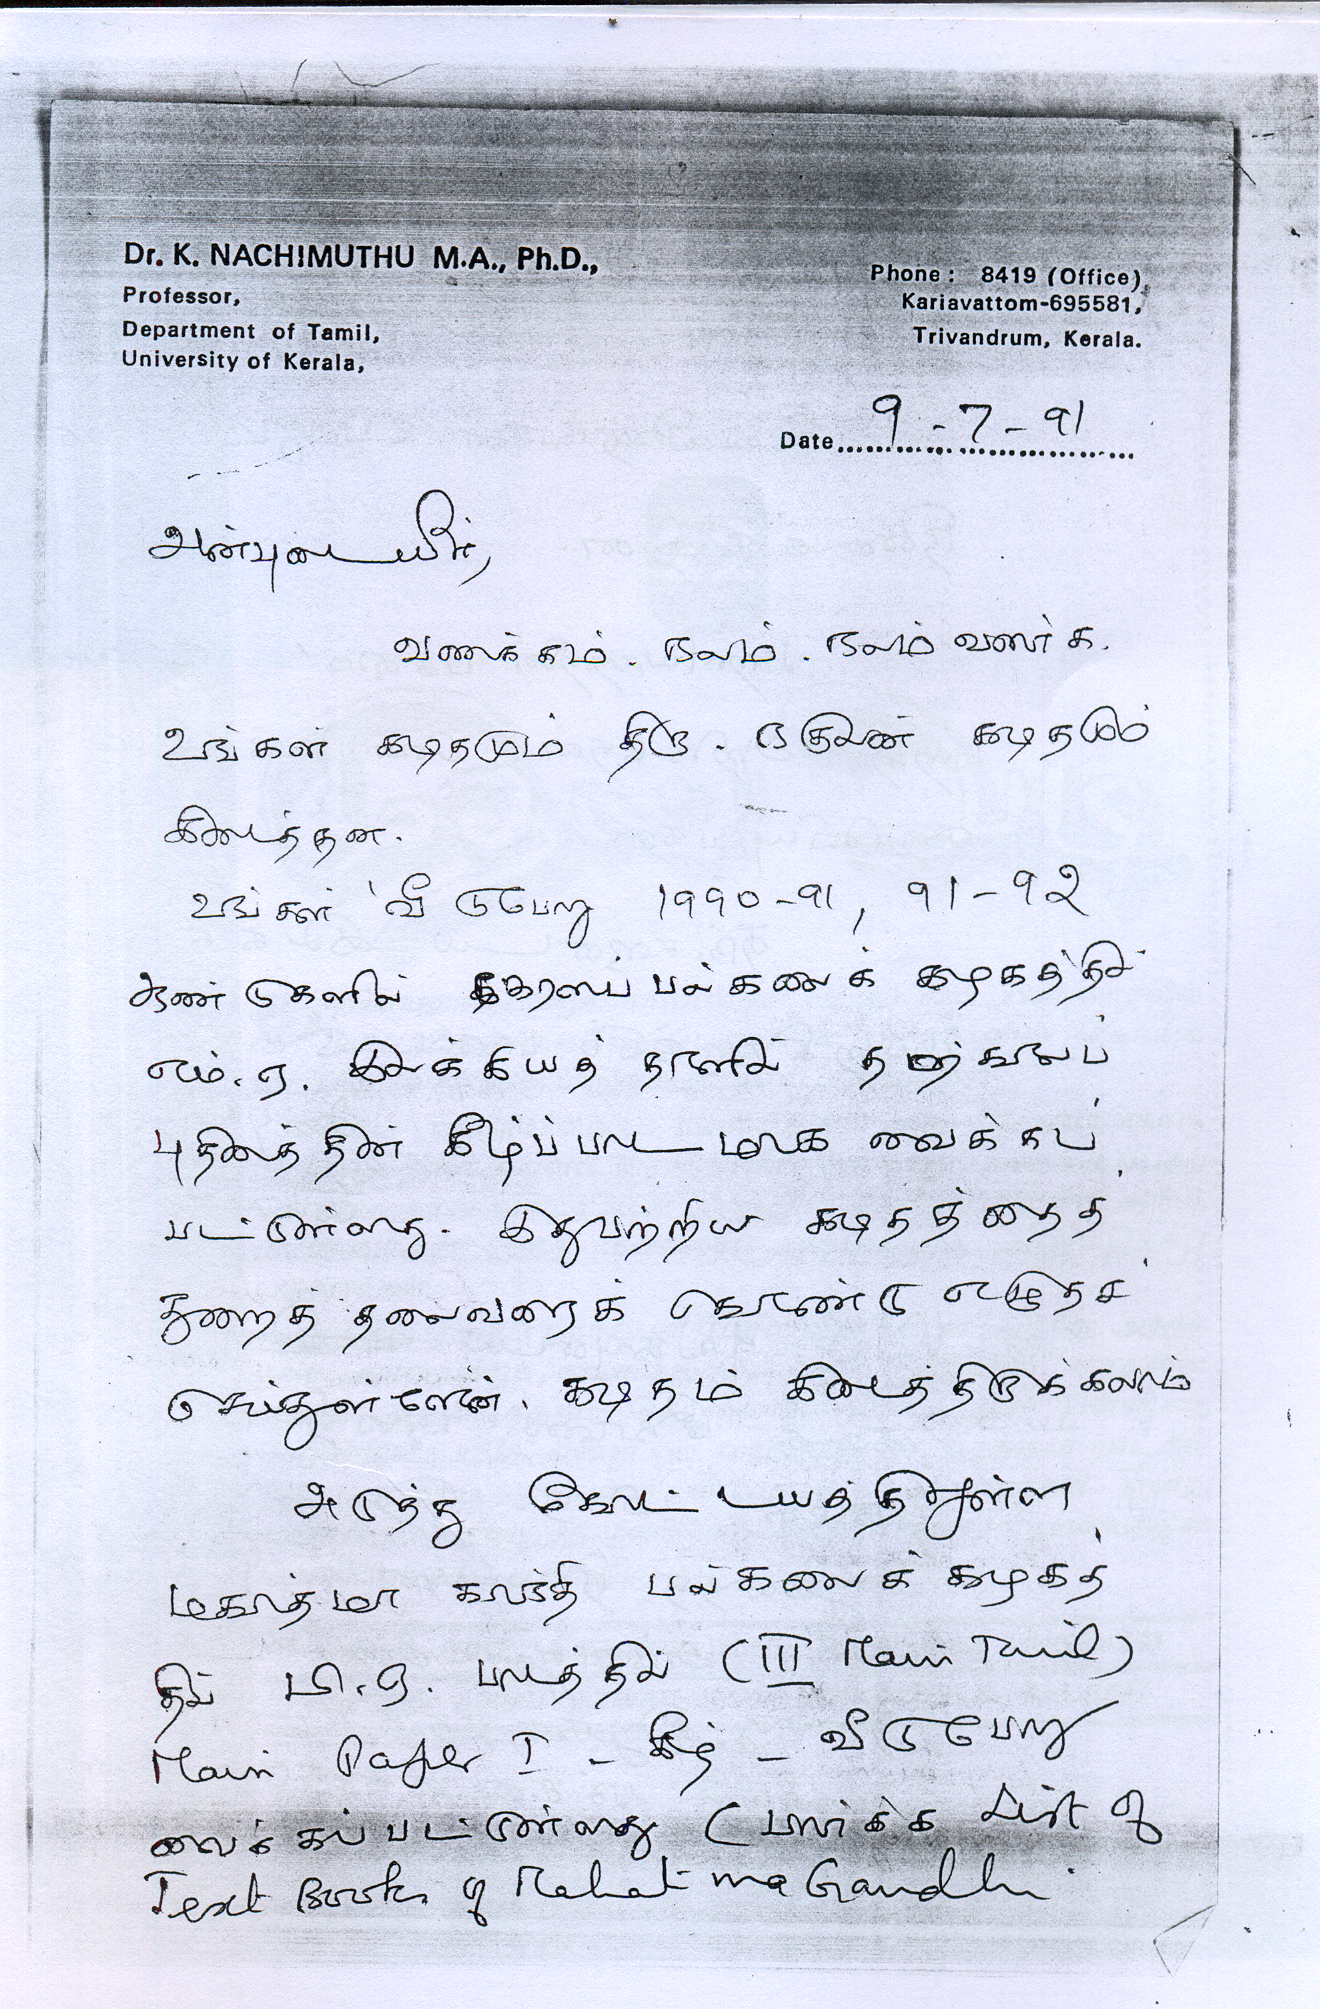 Dr. K. NACHIMUTHU M.A., Ph.D.,
Professor,
Department of Tamil,
University of Kerala,
Phone : 8419 (Office)
Kariavattom-695581,
Trivandrum, Kerala.
Date 9-7-91
அன்புடையீர்,
வணக்கம். நலம். நலம் வளர்க.
உங்கள் கடிதமும் திரு. நகுலன் கடிதமும்
கிடைத்தன.
உங்கள் 'வீடுபேறு 1990-91, 91-92
ஆண்டுகளில் கேரளப் பல்கலைக் கழகத்தில்
எம்.ஏ. இலக்கியத் தாளில் தற்காலப்
புதினத்தின் கீழ்ப்பாடமாக வைக்கப்
பட்டுள்ளது. இதுபற்றிய கடிதத்தைத்
துறைத் தலைவரைக் கொண்டு எழுதச்
செய்துள்ளேன். கடிதம் கிடைத்திருக்கலாம்
அடுத்து கோட்டயத்திலுள்ள
மகாத்மா காந்தி பல்கலைக் கழகத்
தில் பி.ஏ. பாடத்தில் (III Main Tamil)
Main Paper I - கீழ் - வீடுபேறு
வைக்கப்பட்டுள்ளது (பார்க்க List of
Text Books of Mahatma Gandhi